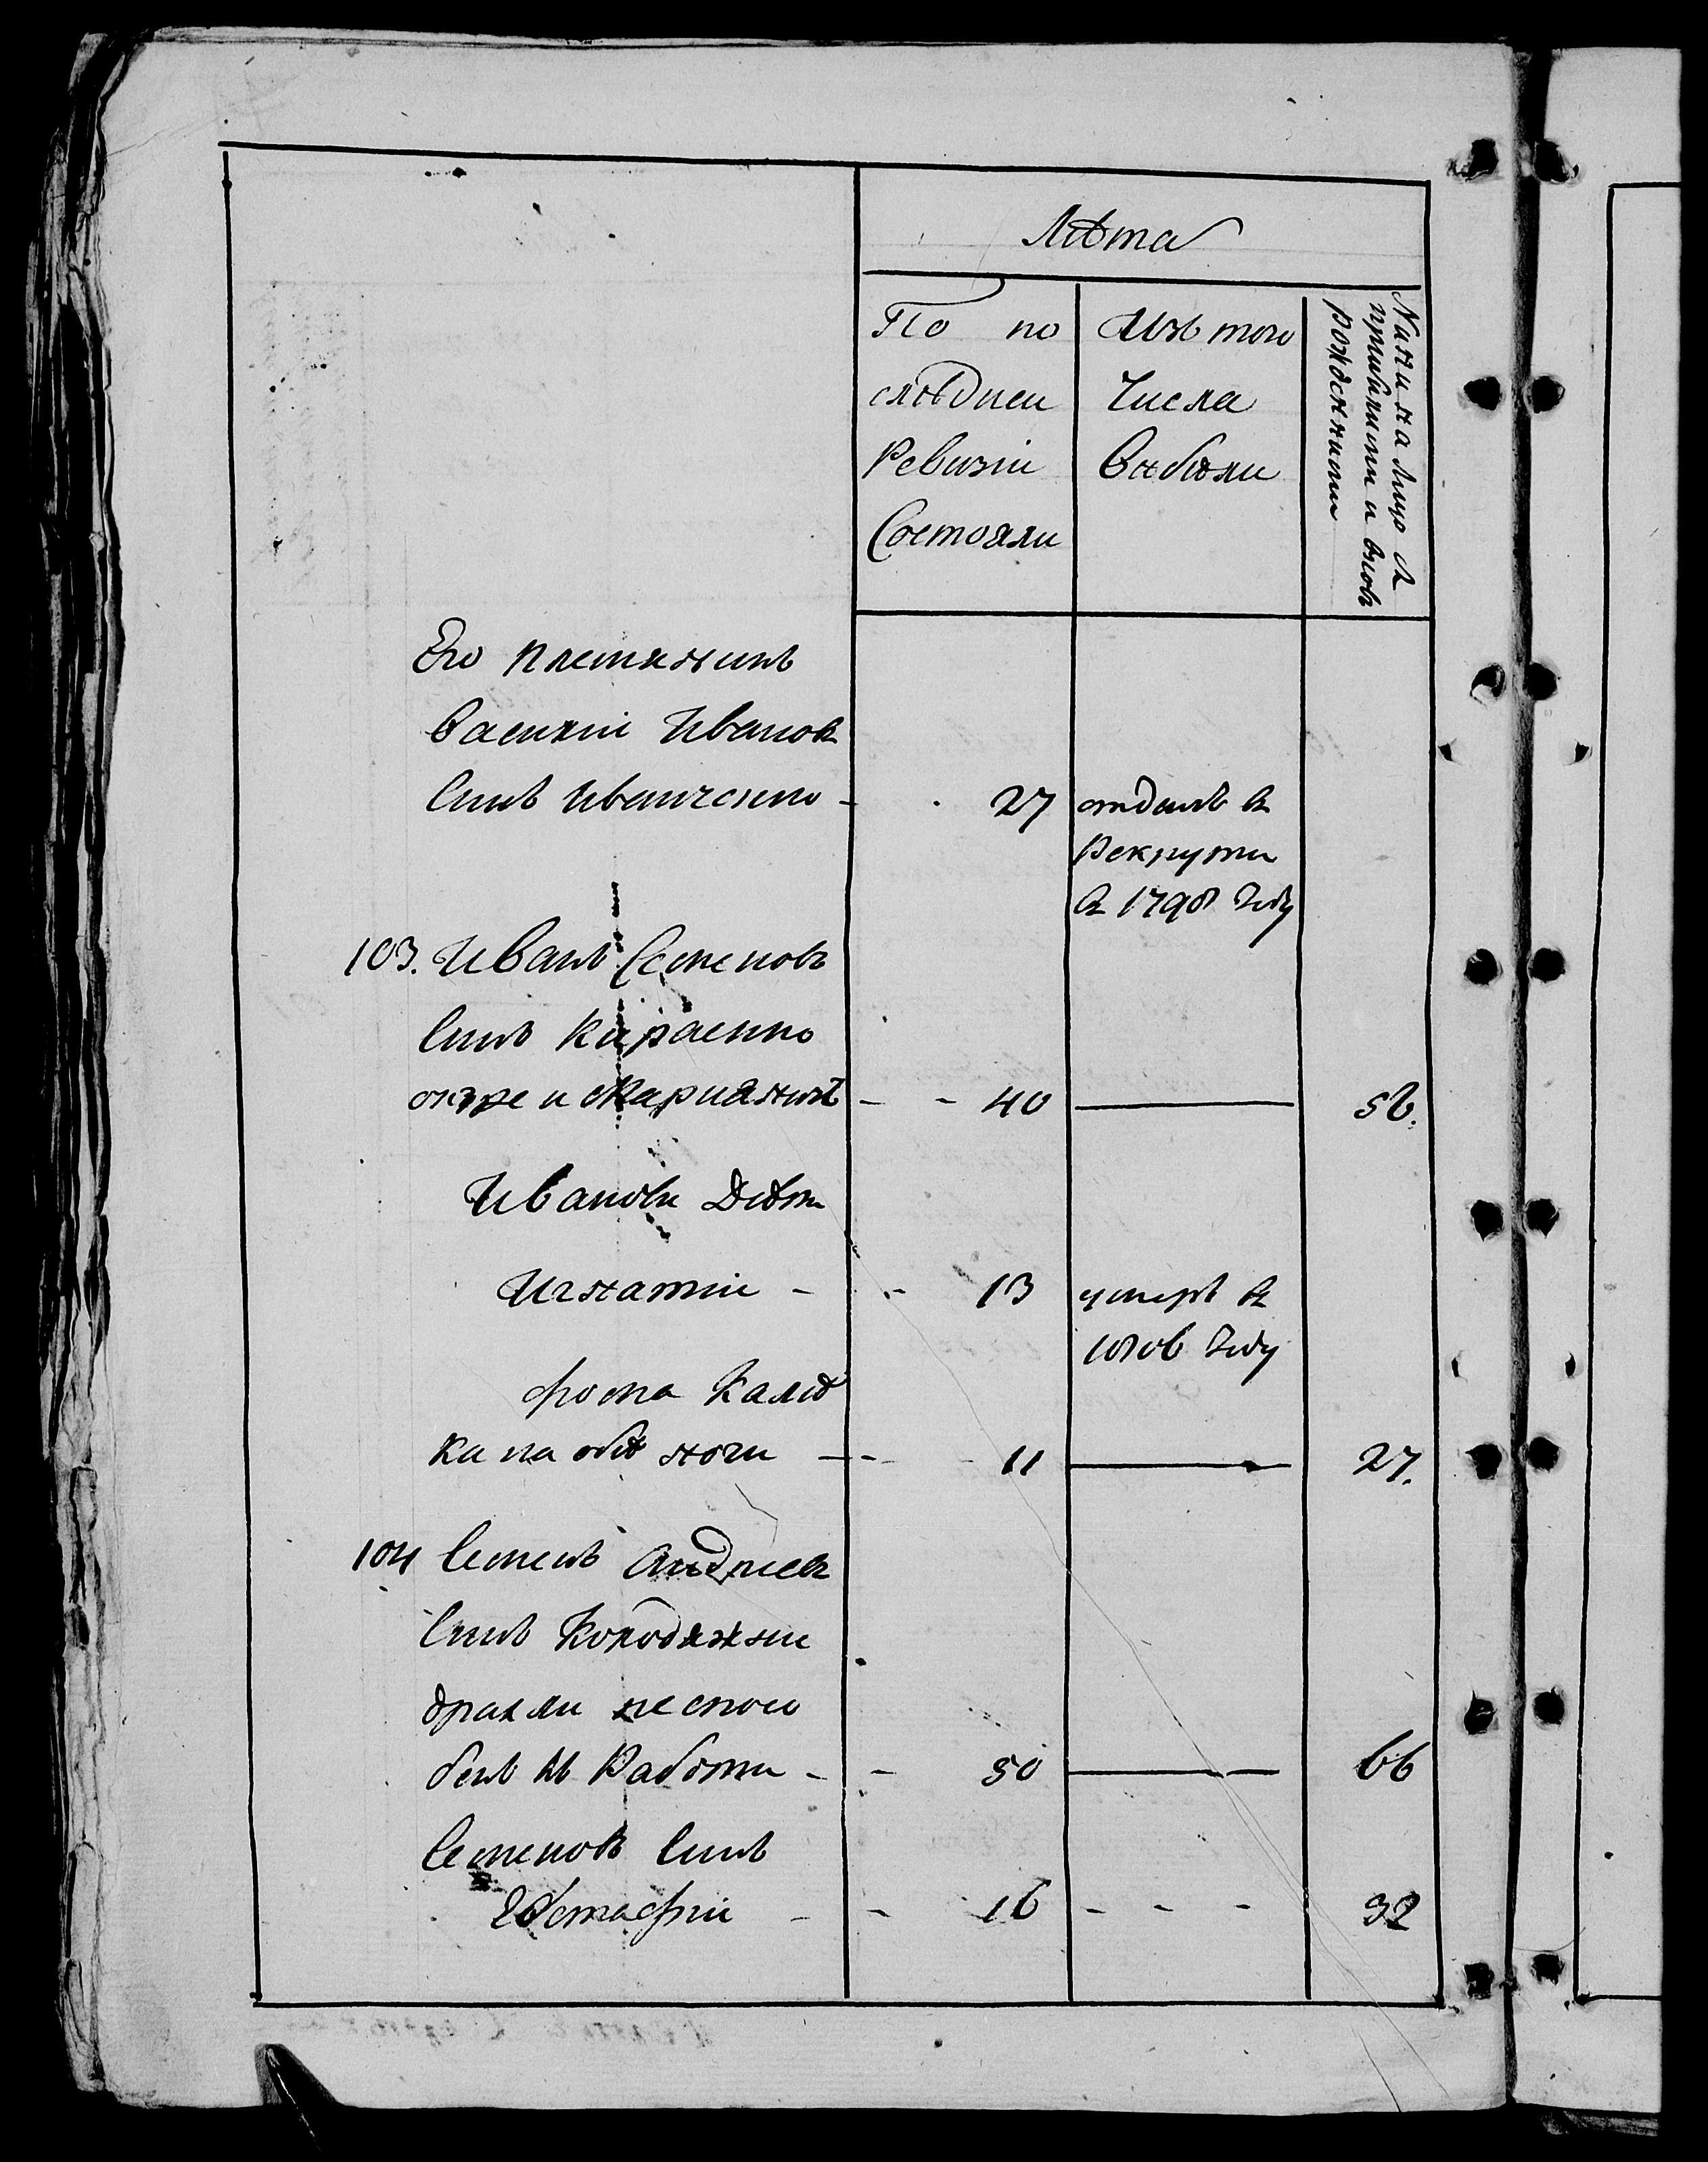 Лѣта
По по
слѣдней
Ревизіи
Состояли
Изъ того
Числа
Выбыли
Ныни на лицо съ
прибылыми и вновь
рожденными
Его племянникъ
Василій Ивановъ
Сынъ Иванченко - 27 отданъ въ
Рекруты
въ 1798 году
103. Иванъ Семеновъ
Сынъ
40 56.
Ивановы Дѣти
Игнатій - 13 умеръ въ
1806 году
Фома Калѣ
ка на обѣ ноги - 11 27.
104 Семенъ Андреевъ
Сынъ Колодяжный
дряхлый неспосо
бенъ къ Работы - 50 66
Семеновъ Сынъ
Евстафій - 16 - - - 32